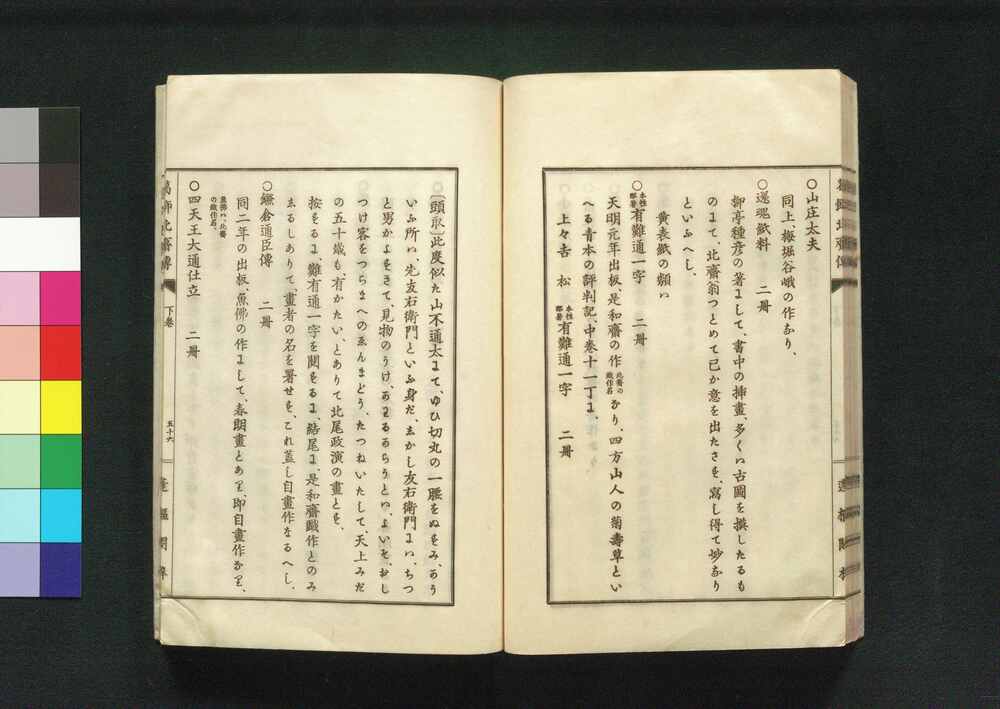 ○山庄太夫
同上、梅堀谷峨の作なり、
○還魂紙料　二冊
柳亭種彦の著にして、書中の挿畫、多くハ古圖を摸したるも
のにて、北齋翁つとめて已か意を出たさを、寫し得て妙なり
といふへし、
黄表紙の類ハ
○本性郡署有難通一字　二冊
天明元年出板、是和齋の作北齋の戯作名なり、四方山人の菊壽草とい
へる青本の評判記、中卷十一丁に、
上々吉　松　本性郡署有難通一字　二冊
○〔頭取〕此度似た山不通太にて、ゆひ切丸の一腰をぬをみ、あう
いふ所ハ、先友右衛門といふ身だ、志かし友右衛門よハ、ちつ
と男かよをきて、見物のうけ、あまるあらうとハ、よいを、おし
つけ客をつらまへのゑんまどう、たつねいたして、天上みだ
の五十歳も、有かたい、とありて北尾政演の畫とを、
按をるに、難有通一字を閲をるに、結尾に、是和齋戯作とのみ
志るしありて、畫者の名を署せを、これ蓋し自畫作なるへし、
○鎌倉通臣傳　二冊
同二年の出板、魚佛の作にして、春朗畫とあり、即自畫作なり、
魚佛ハ、北齋の戯作名、
○四天王大通仕立　二冊
葛飾北齋傳
下卷
五十六
蓬樞閣梓